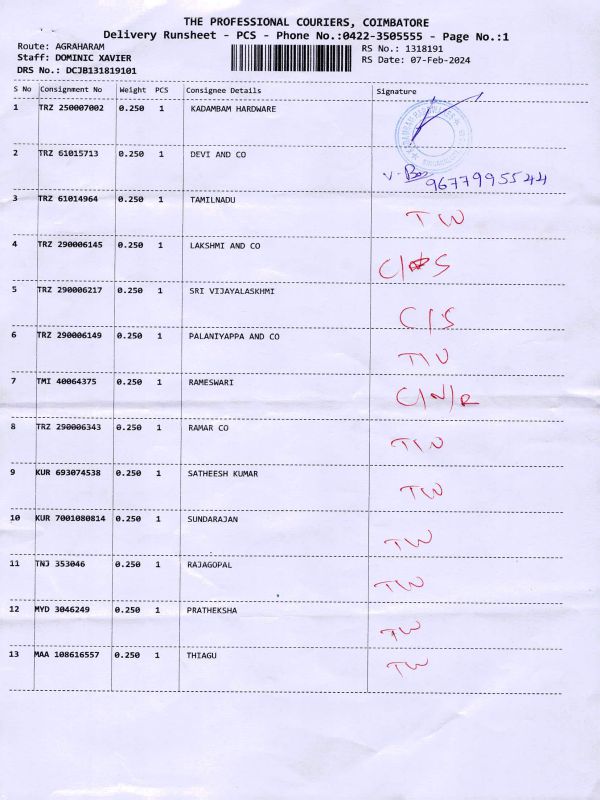 THE PROFESSIONAL COURIERS, COIMBATORE
Delivery Runsheet - PCS - Phone No.:0422-3505555 - Page No.:1
Route: AGRAHARAM RS No.: 1318191
Staff: DOMINIC XAVIER RS Date: 07-Feb-2024
DRS No.: DCJB131819101
S No Consignment No Weight PCS Consignee Details Signature
1 TRZ 250007002 0.250 1 KADAMBAM HARDWARE
2 TRZ 61015713 0.250 1 DEVI AND CO
9677995544
3 TRZ 61014964 0.250 1 TAMILNADU TW
4 TRZ 290006145 0.250 1 LAKSHMI AND CO
5 TRZ 290006217 0.250 1 SRI VIJAYALASKHMI C/S
6 TRZ 290006149 0.250 1 PALANIYAPPA AND CO
7 TMI 40064375 0.250 1 RAMESWARI C/N/R
8 TRZ 290006343 0.250 1 RAMAR CO
9 KUR 693074538 0.250 1 SATHEESH KUMAR TW
10 KUR 7001080814 0.250 1 SUNDARAJAN TW
11 TNJ 353046 0.250 1 RAJAGOPAL TW
12 MYD 3046249 0.250 1 PRATHEKSHA TW
13 MAA 108616557 0.250 1 THIAGU TW